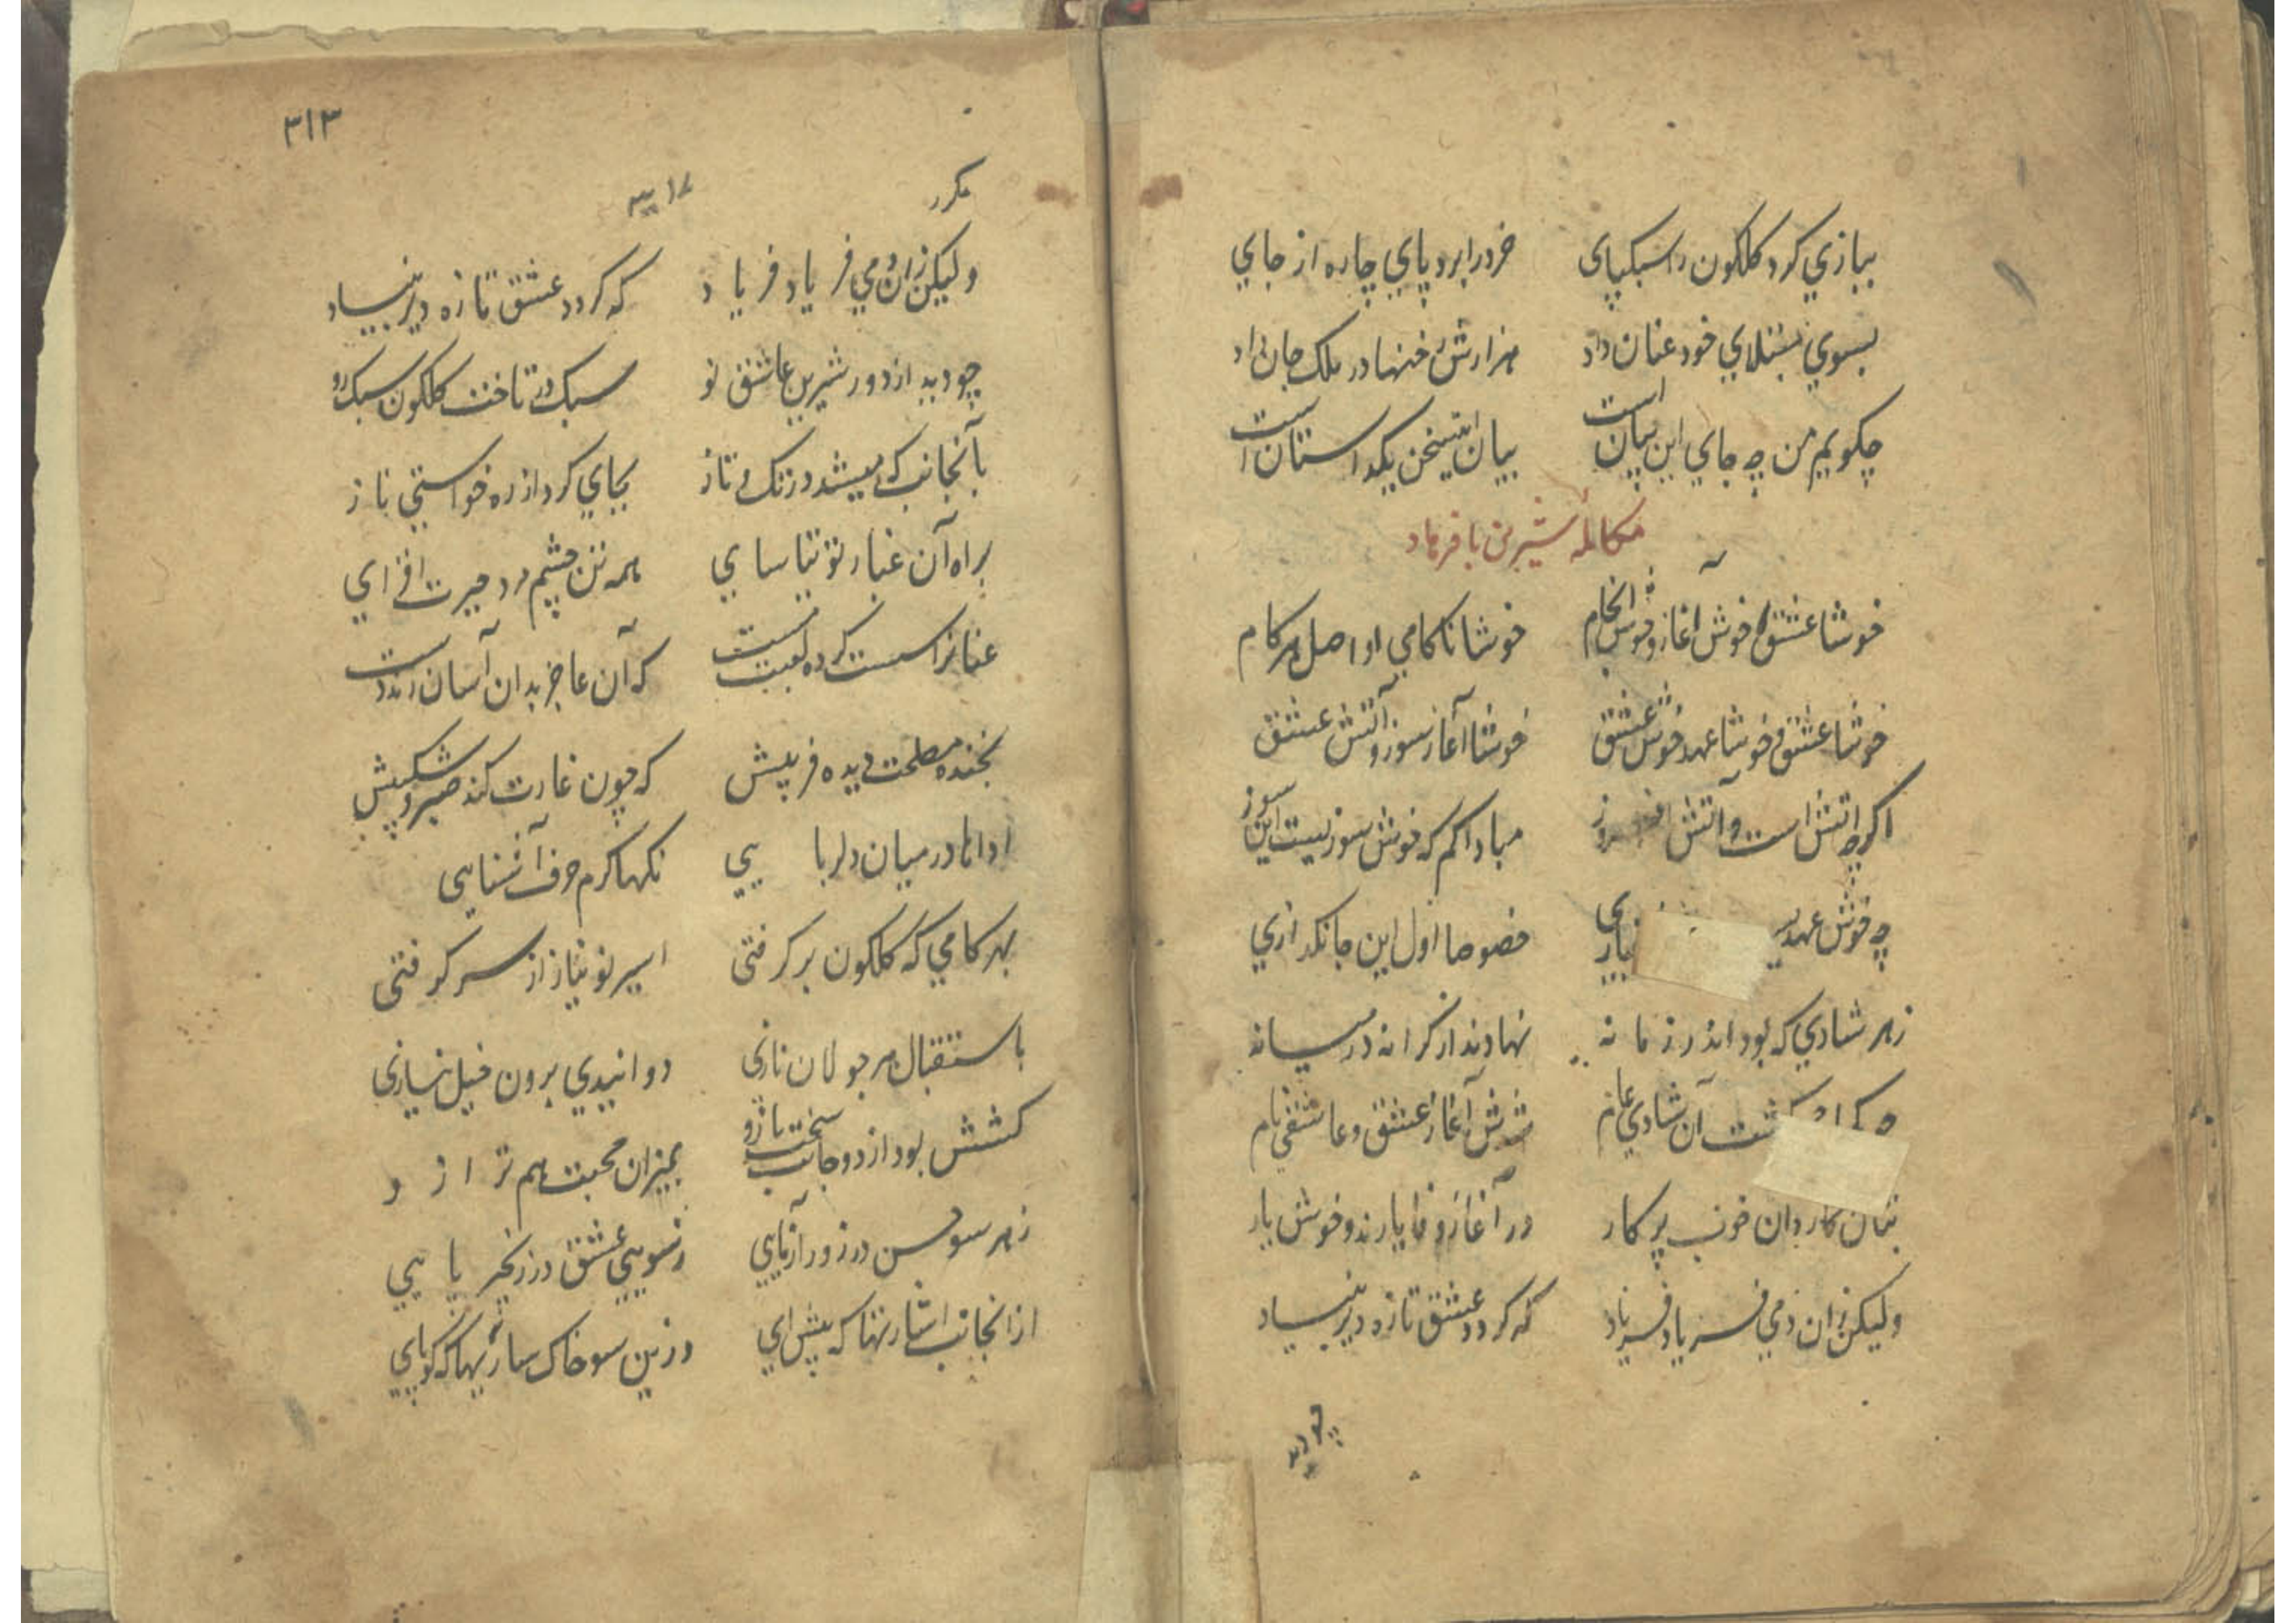 ببازي كرد گلگون را سبكپای خرد را برد پاي چاره از جاي
بسوي مبتلاي خود عنان داد هزارش رخنها در ملک جان داد
چگويم من چه جاي اين بيان است بيان اينسخن يکداستان است
مكالمه شيرين با فرهاد
خوشا عشق خوش آغاز و خوش انجام خوشا ناكامي او اصل هر كام
خوشا عشق و خوشا عهد خوش عشق خوشا آغاز سوز آتش عشق
اگرچه اتش است و آتش افروز مبادا كم كه خوش سوزيست اين سوز
چه خوش عهد خصوصا اول اين جانگدازي
زهر شادي كه بود اندر زمانه نهادند از كرانه در ميانه
گشت آن شادي عام شدش آغاز عشق و عاشقي نام
بتان كاردان خوب پركار در آغاز وفا يارند و خوش يار
وليكن زان دمي فرياد فرياد كه گردد عشق تازه دير بنياد
چو ديد
٣١٣
مكرر
وليكن زان دمي فرياد فرياد كه گردد عشق تازه دير بنياد
چو ديد از دور شيرين عاشق نو سبک در تاخت گلگون سبک رو
بآنجانب كه ميشد در تک و تاز بجاي گرد از ره خواستي ناز
براه آن غبار توتيا ساي همه تن چشم مرد حيرت افزاي
عنانرا سست كرده لعبت مست كه آن عاجز بدان آسان زند دست
بخنده مصلحت ديده فريبش كه چون غارت كند صبر و شكيبش
اداها در ميان دلربايي نگها گرم حرف آشنايي
بهر گامي كه گلگون برگرفتی اسير نو نياز از سر گرفتی
باستقبال هر جولان نازی دوانيدي برون خيل نيازی
كشش بود از دو جانب سخت بازو بميزان محبت هم ترازو
زهر سو حسن در زور آزمايي زسويي عشق در زنجير پايي
از انجانب اشارتها كه پيش اي وزين سو خاكساريها كه كو پاي